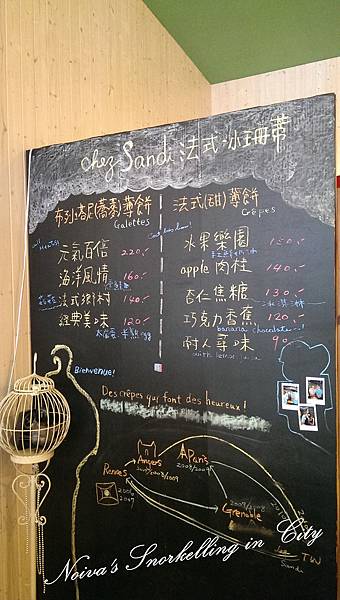 chez Sandi 法式冰珊蒂
布列塔尼(蕎麥)薄餅
Galettes
元氣百倍 220.-
海洋風情 160.-
法式鄉村 140.-
經典美味 120.-
法式(甜)薄餅
Crêpes
水果樂園 150.-
apple 肉桂 140.-
杏仁焦糖 130.-
冰淇淋
巧克力香蕉 120.-
banana chocolate
耐人尋味 90.-
Bienvenue!
Des crêpes qui font des heureux!
Angers
2008/2009
Paris
2008/2009
Rennes
2006
2007
Grenoble
TW
Sandi
Noiva's Snorkelling in City